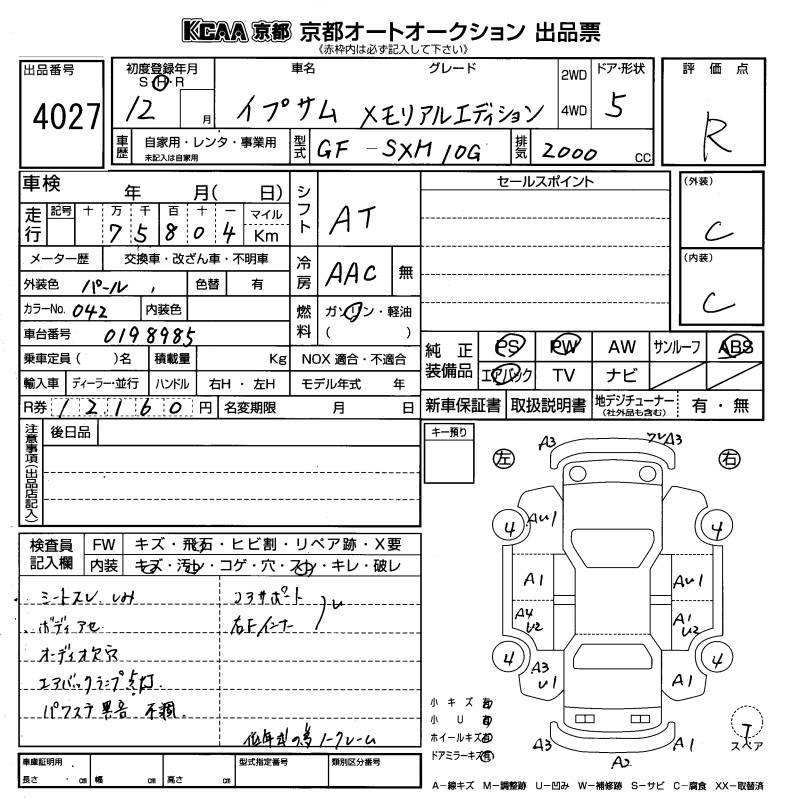 KCAA 京都 京都オートオークション 出品票
《赤枠内は必ず記入して下さい》
出品番号
4027
初度登録年月
S・H・R
12 月
車名 グレード
イプサム メモリアルエディション
2WD
4WD
ドア・形状
5
評価点
R
車歴
自家用・レンタ・事業用
未記入は自家用
型式
GF-SXM10G
排気
2000 CC
車検 年 月( 日)
走行
記号 十 万 千 百 十 一 マイル
7 5 8 0 4 Km
メーター歴 交換車・改ざん車・不明車
外装色 パール 色替 有
カラーNo. 042 内装色
車台番号 0198985
乗車定員( )名 積載量 Kg
輸入車 ディーラー・並行 ハンドル 右H・左H
R券 12160 円 名変期限 月 日
シフト AT
冷房 AAC 無
燃料 ガソリン・軽油
( )
NOX 適合・不適合
モデル年式 年
セールスポイント
(外装)
C
(内装)
C
純正装備品
PS PW AW サンルーフ ABS
エアバック TV ナビ
新車保証書 取扱説明書 地デジチューナー 有・無
(社外品も含む)
注意事項(出品店記入)
後日品
キー預り
検査員記入欄
FW キズ・飛石・ヒビ割・リペア跡・X要
内装 キズ・汚れ・コゲ・穴・スレ・キレ・破レ
シートスレ しみ
ボディアセ
オーディオ欠穴
エアバックランプ点灯
パワステ異音 不調
コアサポート
右Fインナー
低年式の為ノークレーム
左 右
A3 A3
4 4
AU1
A1 AU1
A4 U2 A1 U2
4 4
A3 U1 A1
A3 A2 A1
小キズ有
小U有
ホイールキズ有
ドアミラーキズ有
T
スペア
車庫証明用
長さ cm 幅 cm 高さ cm
型式指定番号
類別区分番号
A−線キズ M−調整跡 U−凹み W−補修跡 S−サビ C−腐食 XX−取替済